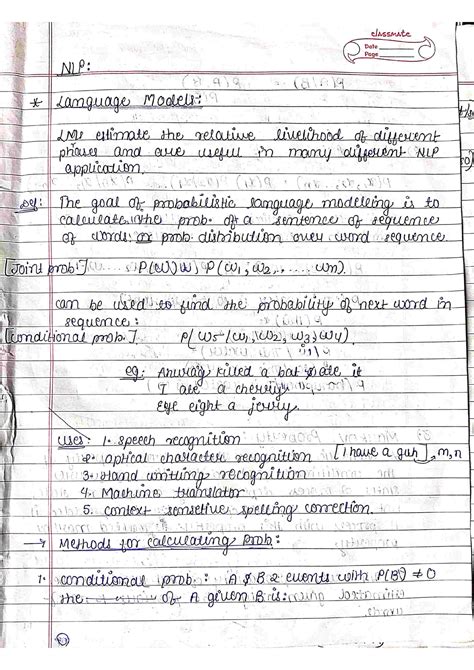 classmate
Date
Page
NLP:
* Language Models:
LMs estimate the relative likelihood of different
phrases and are useful in many different NLP
application.
Def: The goal of probabilistic language modelling is to
calculate the prob. of a sentence of sequence
of words or prob distribution over word sequence
[Joint prob.] P(W) P(w1, w2, ..... wn).
can be used to find the probability of next word in
sequence:
[conditional prob.] P(w5 / w1, w2, w3, w4)
eg: Anurag killed a bat ate it
I ate a cherry
Eye eight a jerry.
Uses: 1. speech recognition
2. optical character recognition [I have a gun], m, n
3. Hand writting recognition
4. Machine translator
5. context sensetive spelling correction.
→ Methods for calculating prob:
1. conditional prob.: A & B 2 events with P(B) ≠ 0
the of A given B is: